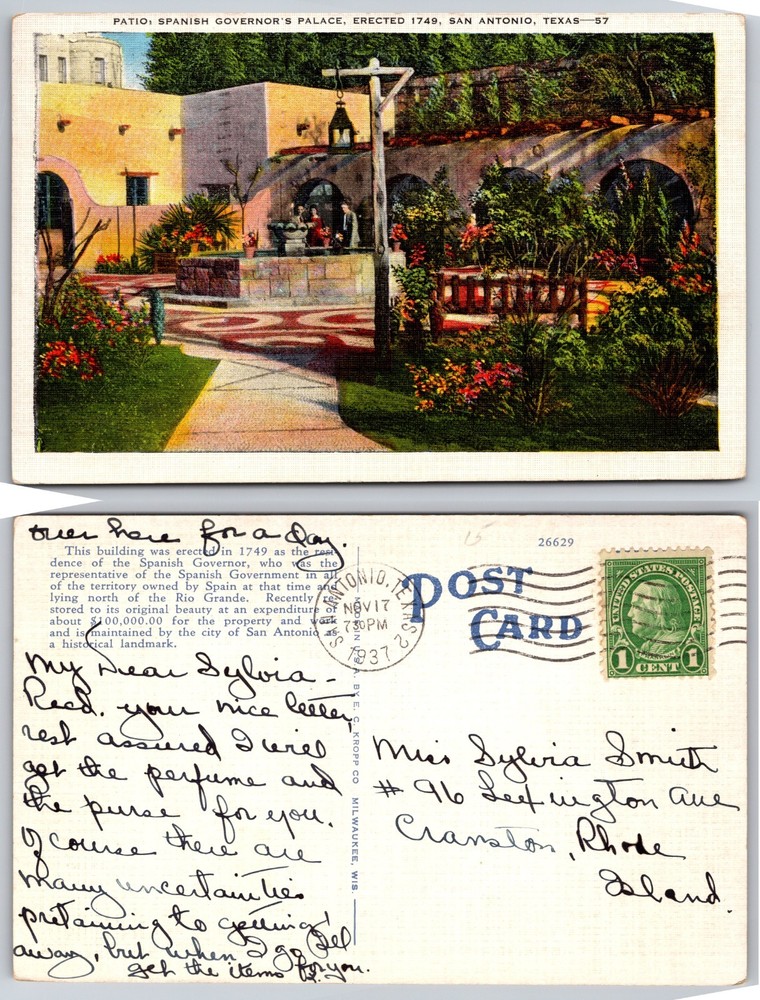 PATIO: SPANISH GOVERNOR'S PALACE, ERECTED 1749, SAN ANTONIO, TEXAS—57
over here for a day.
This building was erected in 1749 as the resi-
dence of the Spanish Governor, who was the
representative of the Spanish Government in all
of the territory owned by Spain at that time and
lying north of the Rio Grande. Recently re-
stored to its original beauty at an expenditure of
about $100,000.00 for the property and work
and is maintained by the city of San Antonio as
a historical landmark.
My Dear Sylvia –
Recd. your nice letter,
rest assured I will
get the perfume and
the purse for you.
Of course there are
many uncertainties
pretaining to getting
away, but when I go I'll
get the items for you.
26629
POST
CARD
SAN ANTONIO, TEXAS 2
NOV 17
730 PM
1937
UNITED STATES POSTAGE
FRANKLIN
1 CENT 1
BY E. C. KROPP CO. MILWAUKEE, WIS.
Miss Sylvia Smith
# 96 Lexington Ave
Cranston, Rhode
Island.
15